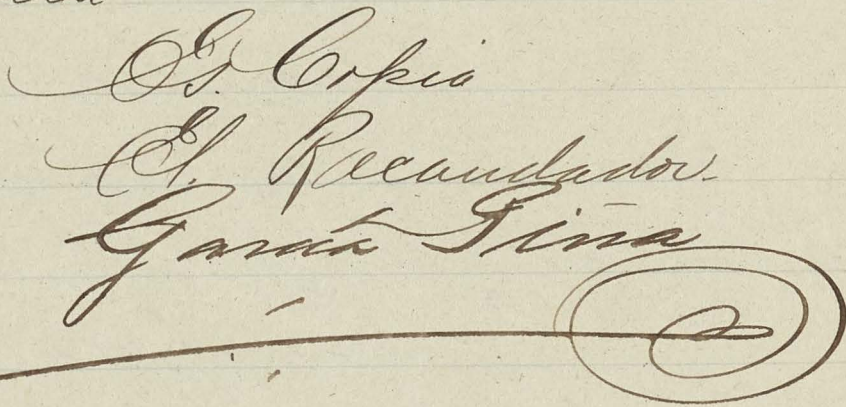 Es Copia
El Recaudador.
García Piña